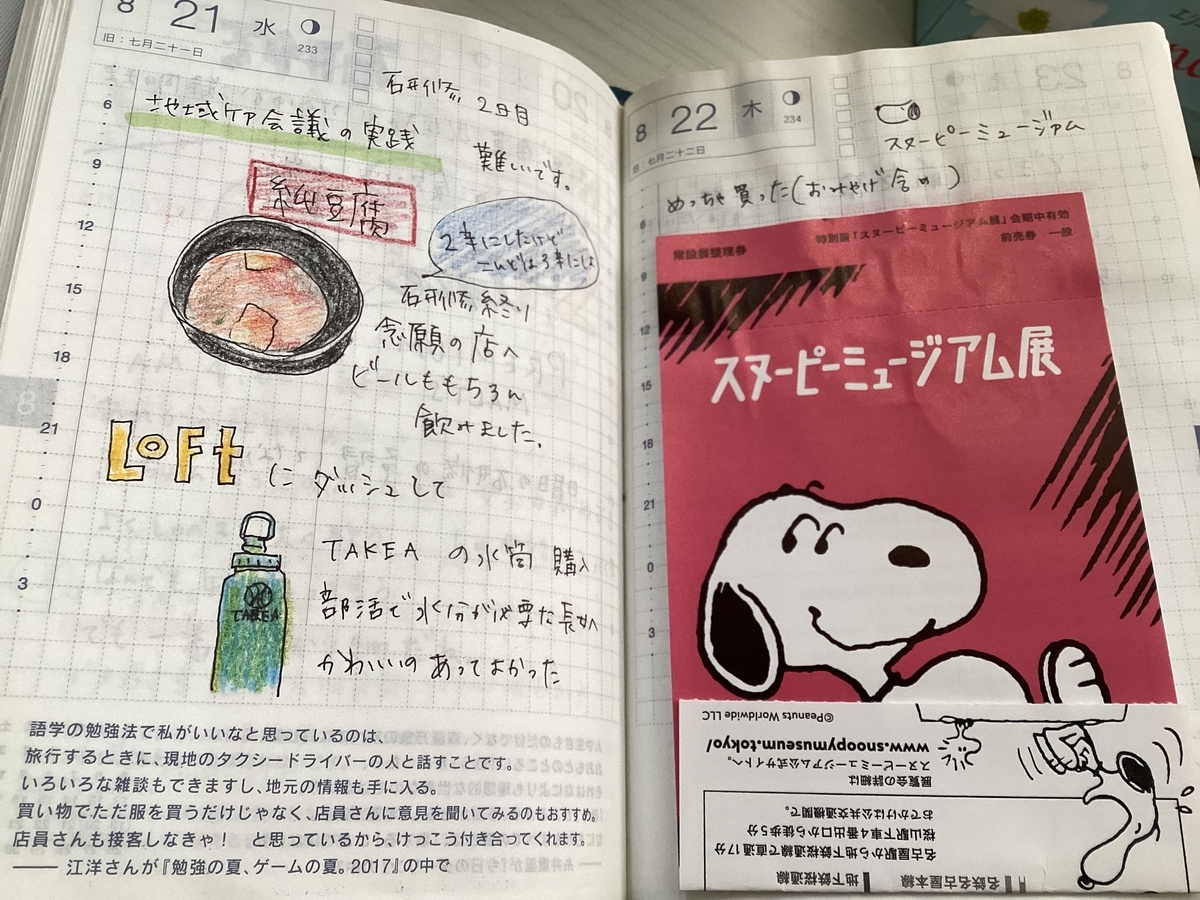 8 21 水
233
旧:七月二十一日
石形修 2日目
地域ケア会議の実践
難いです。
純豆腐
2辛にしたけど
こんどは3辛にしよ
石形修終り
念願の店へ
ビールももちろん
飲みました。
LOFt にダッシュして
TAKEA の水筒 購入
TAKEA
部活で水分が必要な長女へ
かわいいの あってよかった
6
9
12
15
18
21
0
3
8
語学の勉強法で私がいいなと思っているのは、
旅行するときに、現地のタクシードライバーの人と話すことです。
いろいろな雑談もできますし、地元の情報も手に入る。
買い物でただ服を買うだけじゃなく、店員さんに意見を聞いてみるのもおすすめ。
店員さんも接客しなきゃ! と思っているから、けっこう付き合ってくれます。
―― 江洋さんが『勉強の夏、ゲームの夏。2017』の中で
8 22 木
234
旧:七月二十二日
スヌーピーミュージアム
めっちゃ買った(おみやげ含め)
6
9
12
15
18
21
0
3
常設展整理券
特別展「スヌーピーミュージアム展」会期中有効
前売券 一般
スヌーピーミュージアム展
©Peanuts Worldwide LLC
www.snoopymuseum.tokyo/
スヌーピーミュージアム公式サイトへ。
展覧会の詳細は
おでかけは公共交通機関で。
桜山駅下車4番出口から徒歩5分
名古屋駅から地下鉄桜通線で直通17分
地下鉄桜通線
名鉄名古屋本線